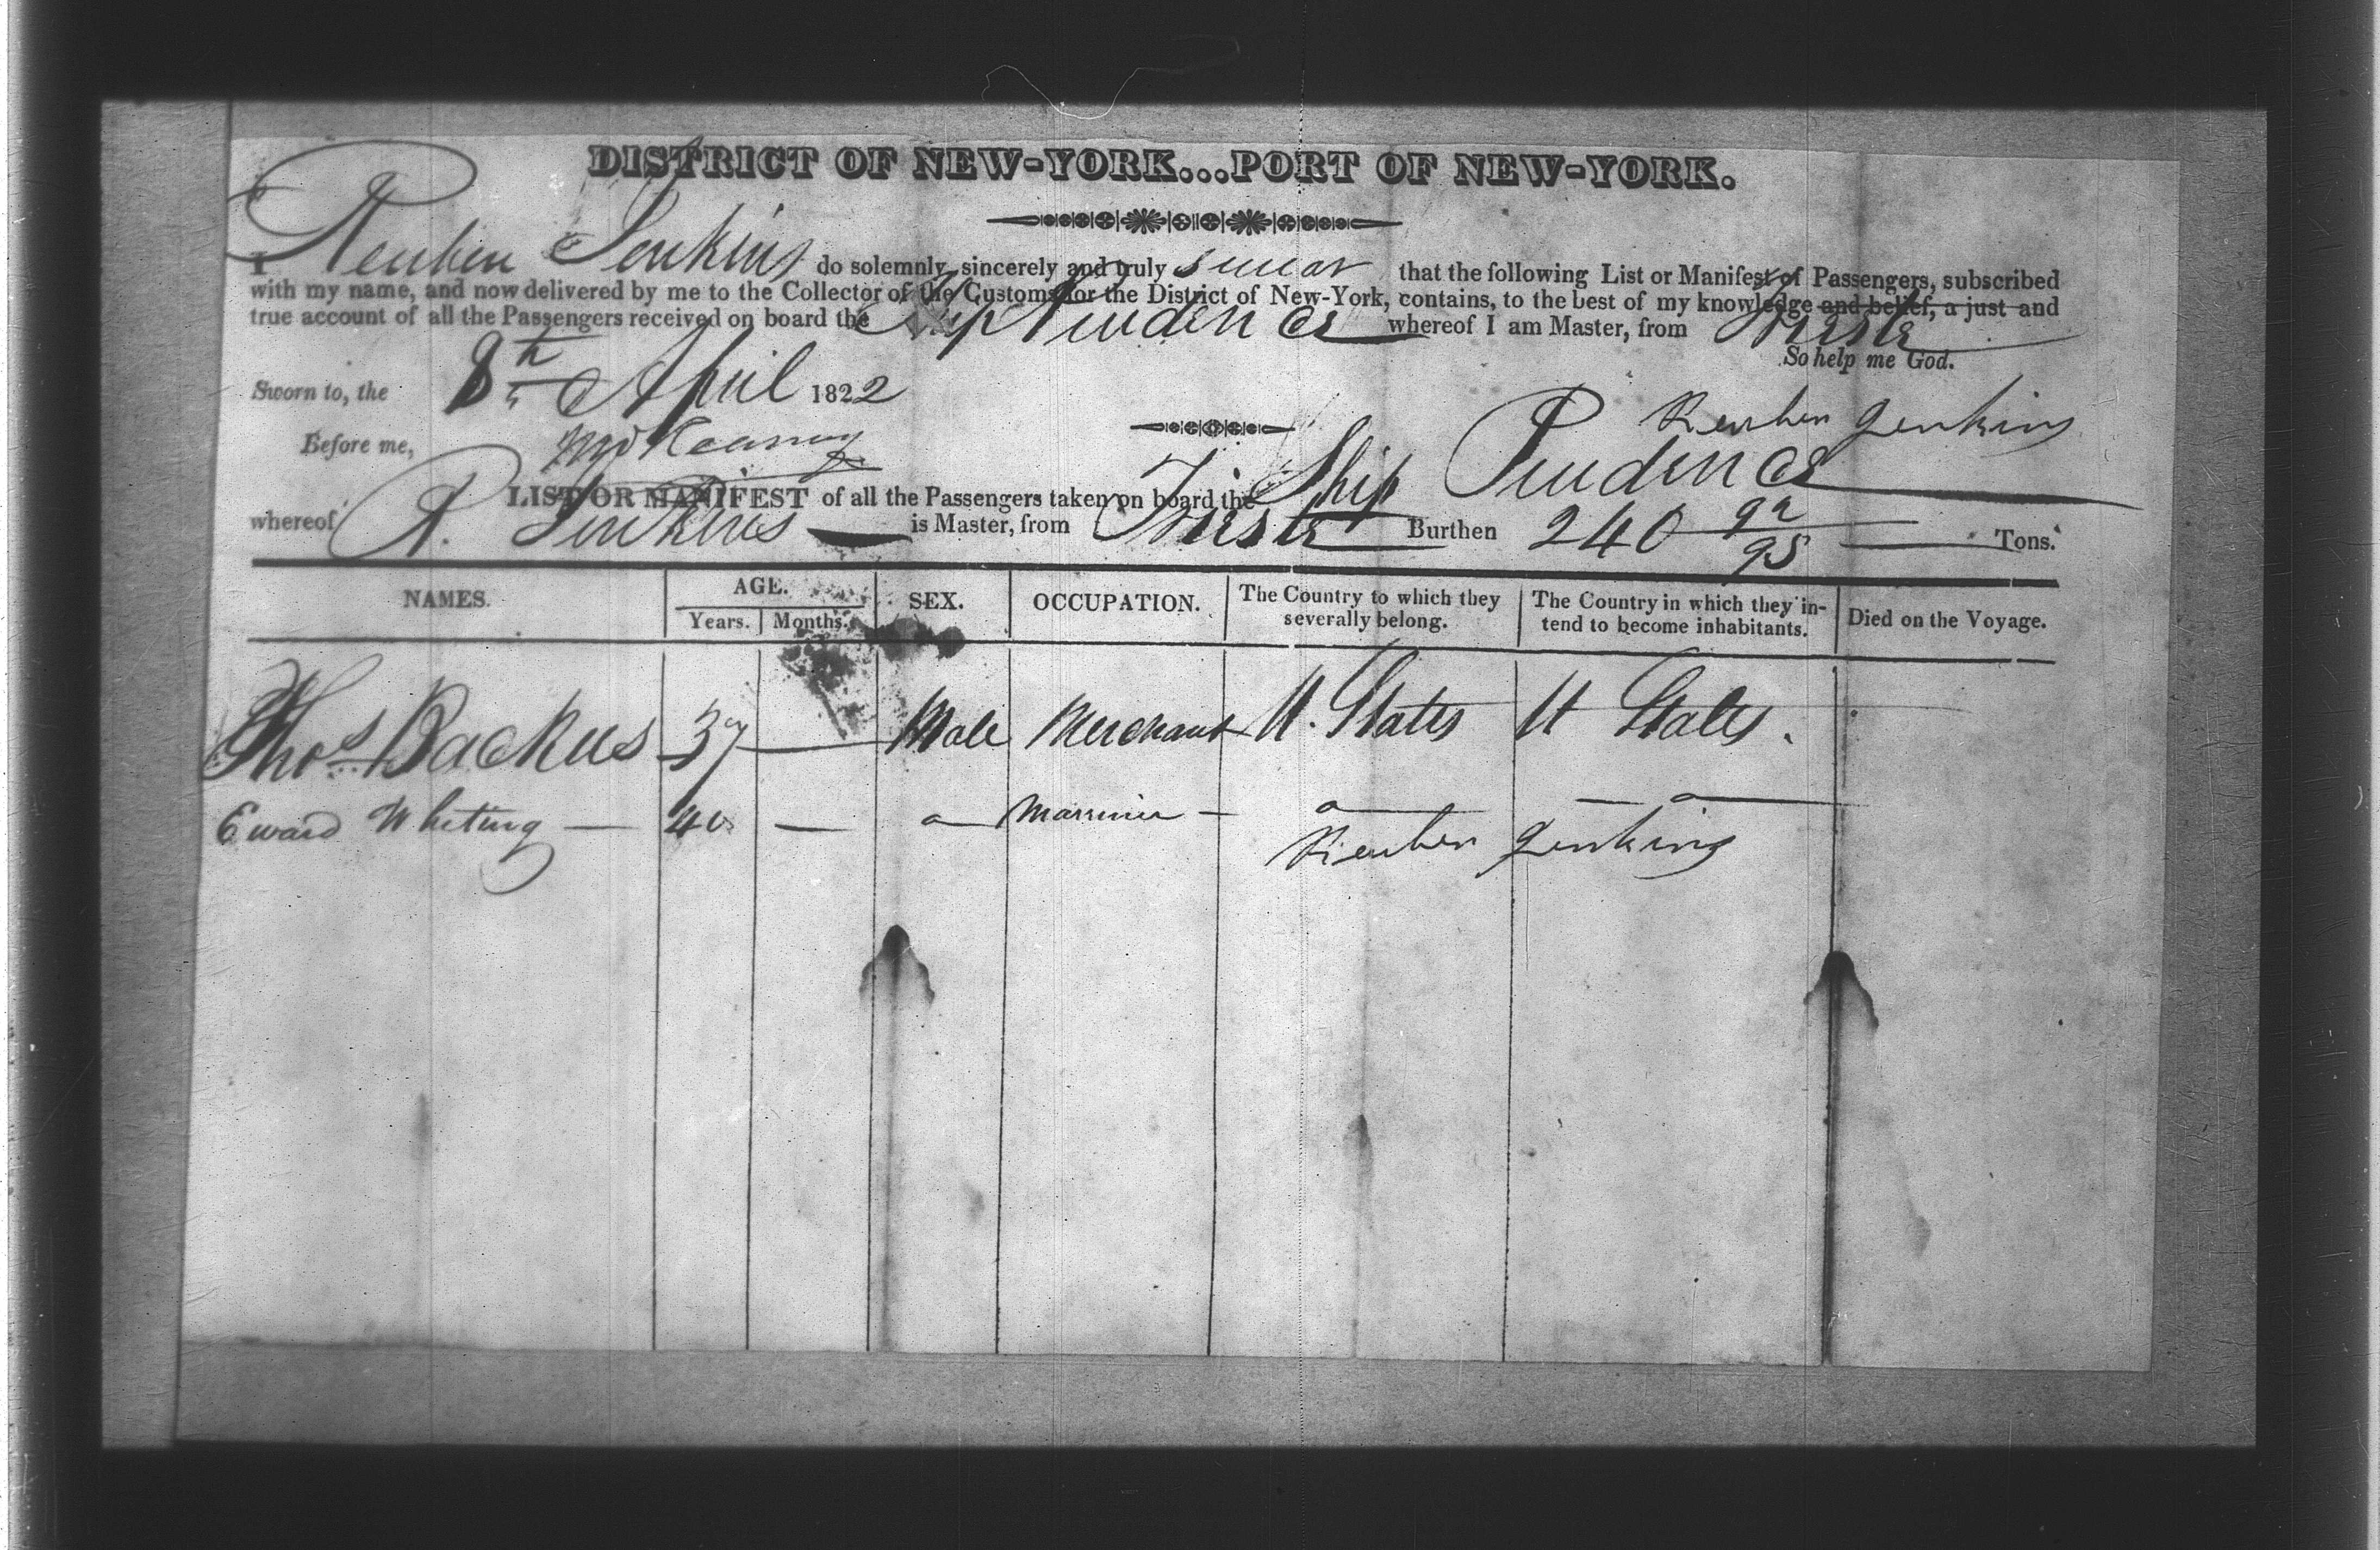 DISTRICT OF NEW-YORK...PORT OF NEW-YORK.
I Reuben Jenkins do solemnly, sincerely and truly swear that the following List or Manifest of Passengers, subscribed
with my name, and now delivered by me to the Collector of the Customs for the District of New-York, contains, to the best of my knowledge and belief, a just and
true account of all the Passengers received on board the Ship Prudence whereof I am Master, from Trieste
So help me God.
Sworn to, the 8th April 1822
Reuben Jenkins
Before me,
LIST OR MANIFEST of all the Passengers taken on board the Ship Prudence
whereof R. Jenkins is Master, from Trieste Burthen 240 92/95 Tons.
NAMES. AGE. Years. Months. SEX. OCCUPATION. The Country to which they severally belong. The Country in which they intend to become inhabitants. Died on the Voyage.
Thos Backus 37 — Male Merchant U. States U States.
Eward Whiting — 40 — Marriner —
Reuben Jenkins